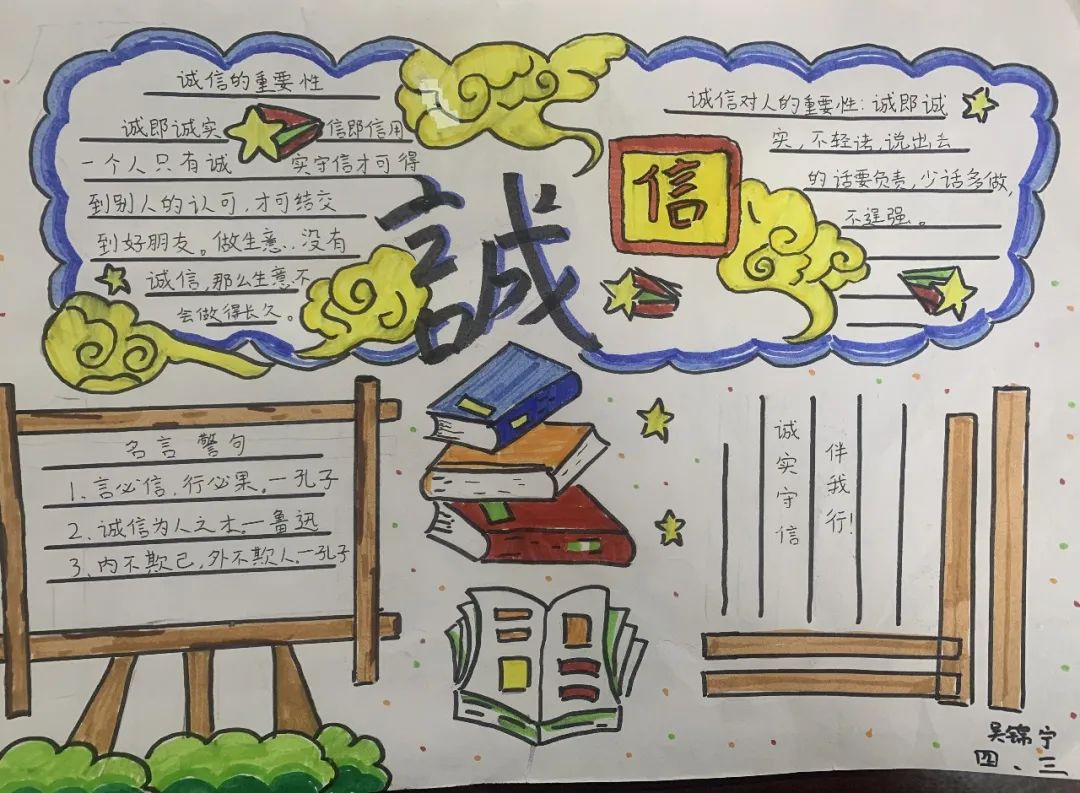 诚信的重要性
诚即诚实 信即信用
一个人只有诚 实守信才可得
到别人的认可,才可结交
到好朋友。做生意..没有
诚信,那么生意不
会做得长久。
誠
信
诚信对人的重要性:诚即诚
实,不轻诺,说出去
的话要负责,少话多做,
不逞强。
名言警句
1、言必信,行必果。一孔子
2、诚信为人之本。一鲁迅
3、内不欺己,外不欺人。一孔子
诚实守信
伴我行!
吴锦宁
四、三